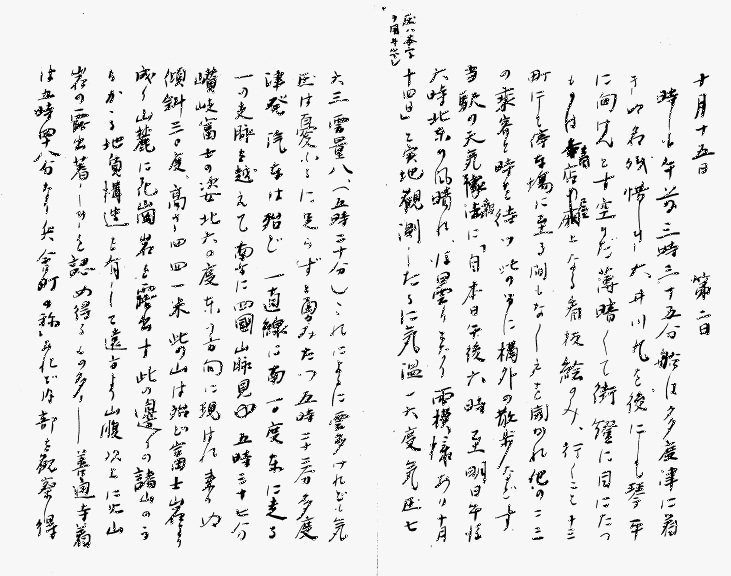 十月十五日 第二日
時しも午前三時三十五分船は多度津に着
す 名残惜しき大井川丸を後にし琴平
に向はんとす空未だ薄暗くして街燈に目にたつ
ものは 店の屋上なる看板絵のみ、行くこと十三
町にして停車場に至る間もなく 開かれ他の二三
の乗客と時を待つ此の に構外の散歩などす
当駅の天気 法に「自本日午後六時至明日午後
六時北東の風晴れ、後曇り 雨模様あり十月
十四日」と実地観測したるに気温一六度気圧七
六三雲量八、(五時二十分)これによるに雲多けれども気
圧は憂ふるに足らずと勇みたつ五時二十三分多度
津発汽車は殆ど一直線に南一〇度東に走る
一の支脈を越えて南方に四國山脈見ゆ五時三十七分
讃岐富士の姿北六〇度東の方向に現はれ来りぬ
傾斜三〇度、高さ四四一米此の山は殆ど富士岩より
成り山麓に花崗岩を露出す此の辺りの諸山のう
ちかゝる地質構造を有して遠方より山腹以上に火山
岩の露出著しきを認め得るもの多し 善通寺着
は五時四十八分なり兵舎町の称あれど内部を観察し得